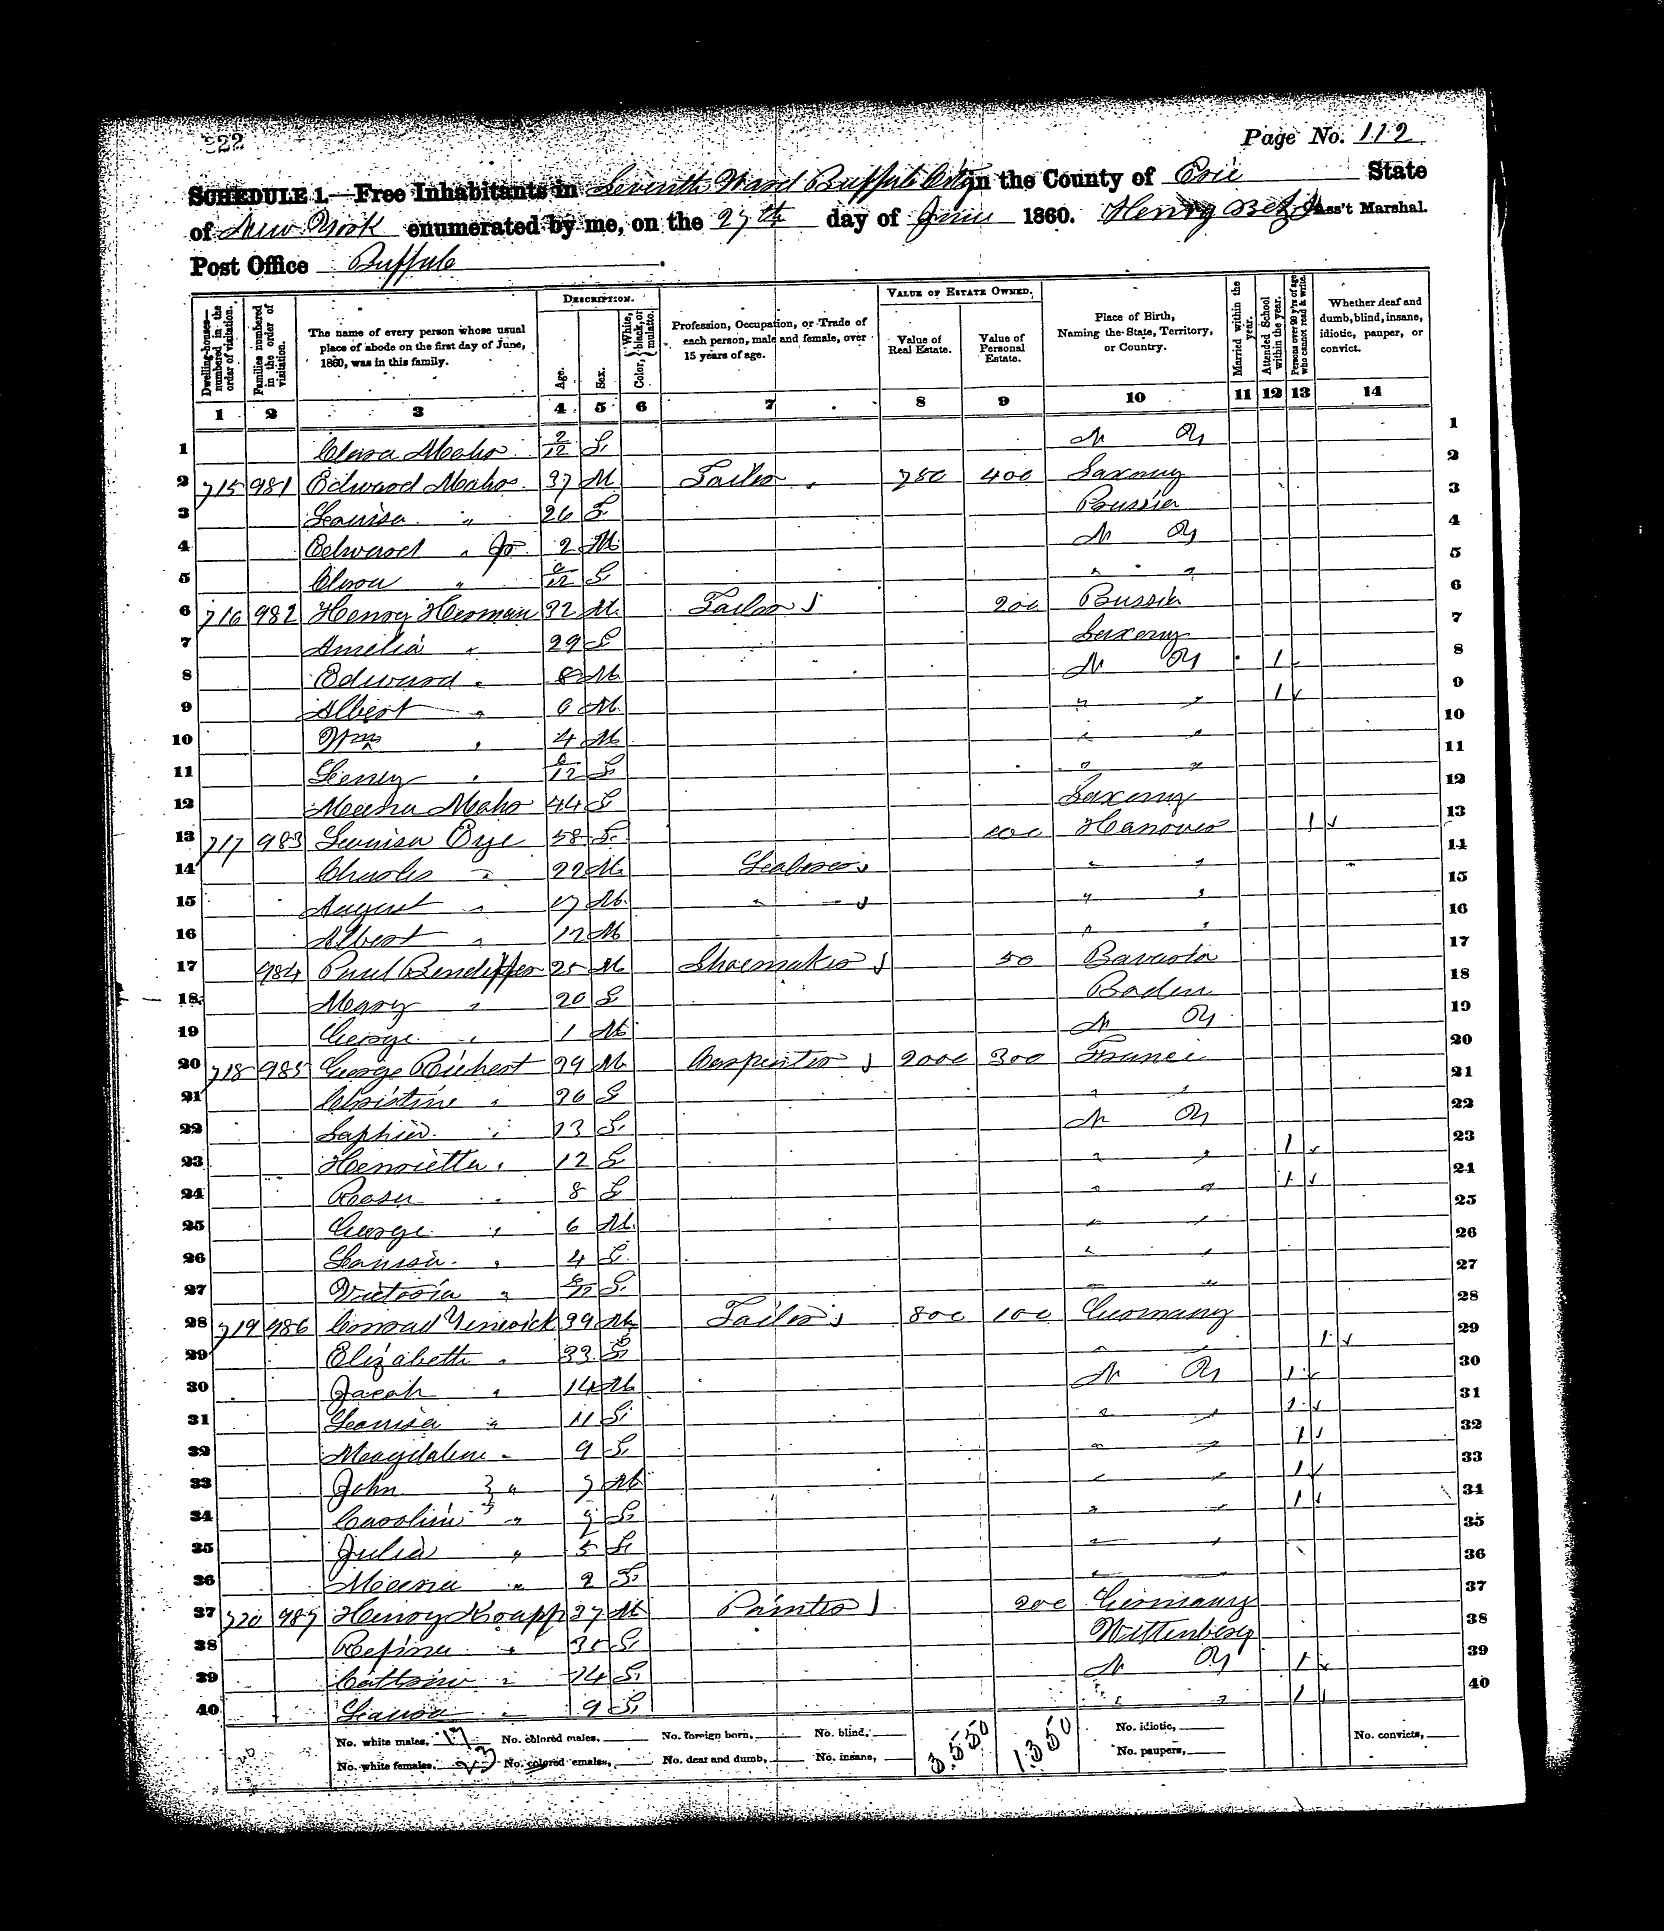 322
Page No. 112
SCHEDULE 1.—Free Inhabitants in Seventh Ward Buffalo City in the County of Erie State
of New York enumerated by me, on the 27th day of June 1860. Henry Ass't Marshal.
Post Office Buffalo
Dwelling-houses—numbered in the order of visitation.
Families numbered in the order of visitation.
The name of every person whose usual place of abode on the first day of June, 1860, was in this family.
DESCRIPTION.
Age.
Sex.
Color, White, black, or mulatto.
Profession, Occupation, or Trade of each person, male and female, over 15 years of age.
VALUE OF ESTATE OWNED.
Value of Real Estate.
Value of Personal Estate.
Place of Birth, Naming the State, Territory, or Country.
Married within the year.
Attended School within the year.
Persons over 20 y'rs of age who cannot read & write.
Whether deaf and dumb, blind, insane, idiotic, pauper, or convict.
1 2 3 4 5 6 7 8 9 10 11 12 13 14
1 Clara Maho 2/12 F N Y 1
2 715 981 Edward Maho 37 M Tailor 750 400 Saxony 2
3 Louisa " 26 F Prussia 3
4 Edward " Jr 2 M N Y 4
5 Clara " /12 F " " 5
6 716 982 Henry Herman 32 M Tailor 200 Prussia 6
7 Amelia " 29 F Saxony 7
8 Edward " 8 M N Y 1 8
9 Albert " 6 M " " 1 9
10 Wm " 4 M " " 10
11 " /12 F " " 11
12 Meena Maho 44 F Saxony 12
13 717 983 Louisa Eye 58 F 100 Hanover 1 13
14 Charles " 22 M Laborer " " 14
15 August " 17 M " " " " 15
16 Albert " 12 M " " 16
17 984 Paul 25 M Shoemaker 50 Bavaria 17
18 Mary " 20 F Baden 18
19 George " 1 M N Y 19
20 718 985 George Richert 39 M Carpenter 2000 300 France 20
21 Christine " 36 F " " 21
22 Saphia " 13 F N Y 22
23 Henrietta " 12 F " " 1 23
24 Rosa " 8 F " " 1 24
25 George " 6 M " " 25
26 Louisa " 4 F " " 26
27 Victoria " /12 F " " 27
28 719 986 Conrad 39 M Tailor 800 100 Germany 28
29 Elizabeth " 33 F " " 1 29
30 Jacob " 14 M N Y 1 30
31 Louisa " 11 F " " 1 31
32 Magdalene " 9 F " " 1 32
33 John " 7 M " " 1 33
34 Caroline " 7 F " " 1 34
35 Julia " 5 F " " 35
36 Meena " 2 F " " 36
37 720 987 Henry Knapp 37 M Painter 200 Germany 37
38 Refina " 35 F Wittenberg 38
39 " 14 F N Y 1 39
40 Louisa " 9 F " " 1 40
No. white males, 17 No. colored males, No. foreign born, No. blind, 3550 1350 No. idiotic, No. convicts,
No. white females, 23 No. colored females, No. deaf and dumb, No. insane, No. paupers,